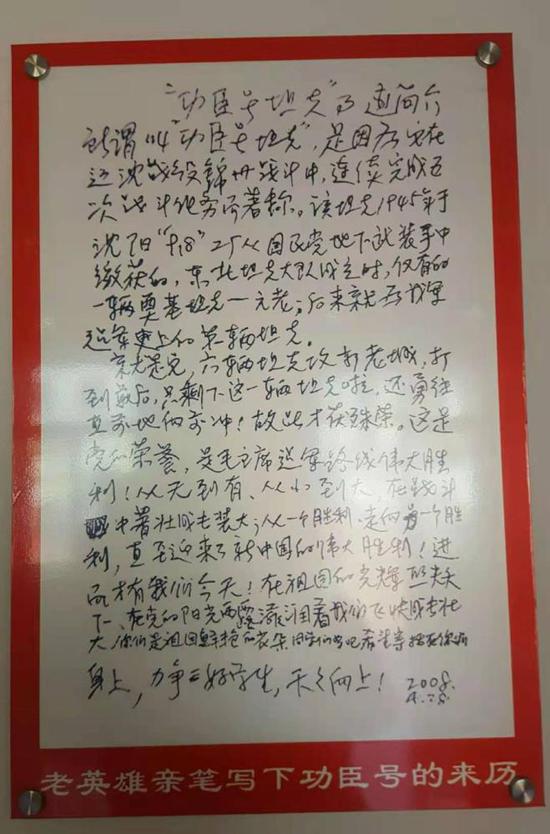 "功臣号坦克"的简介
所谓叫"功臣号坦克", 是因为它在
辽沈战役锦州战斗中, 连续完成五
次战斗任务而著称。该坦克1945年于
沈阳"918"工厂从国民党地下武装手中
缴获的, 东北坦克大队成立时, 仅有的
一辆奠基坦克一元老; 后来就成为我军
军史上的第一辆坦克。
六辆坦克攻打老城, 打
到最后, 只剩下这一辆坦克啦, 还勇往
直前地向前冲! 故此才获殊荣。这是
党的荣誉, 是毛主席建军路线伟大胜
利! 从无到有、从小到大, 在战斗
中著壮成长装大; 从一个胜利走向另一个胜
利, 直至迎来了新中国的伟大胜利! 进
而才有我们今天! 在祖国的光辉照耀
下、在党的阳光雨露滋润着我们飞快成长壮
大, 你们是祖国的花朵, 希望寄托在你们
身上, 力争三好学生, 天天向上! 2008.
4.28.
老英雄亲笔写下功臣号的来历